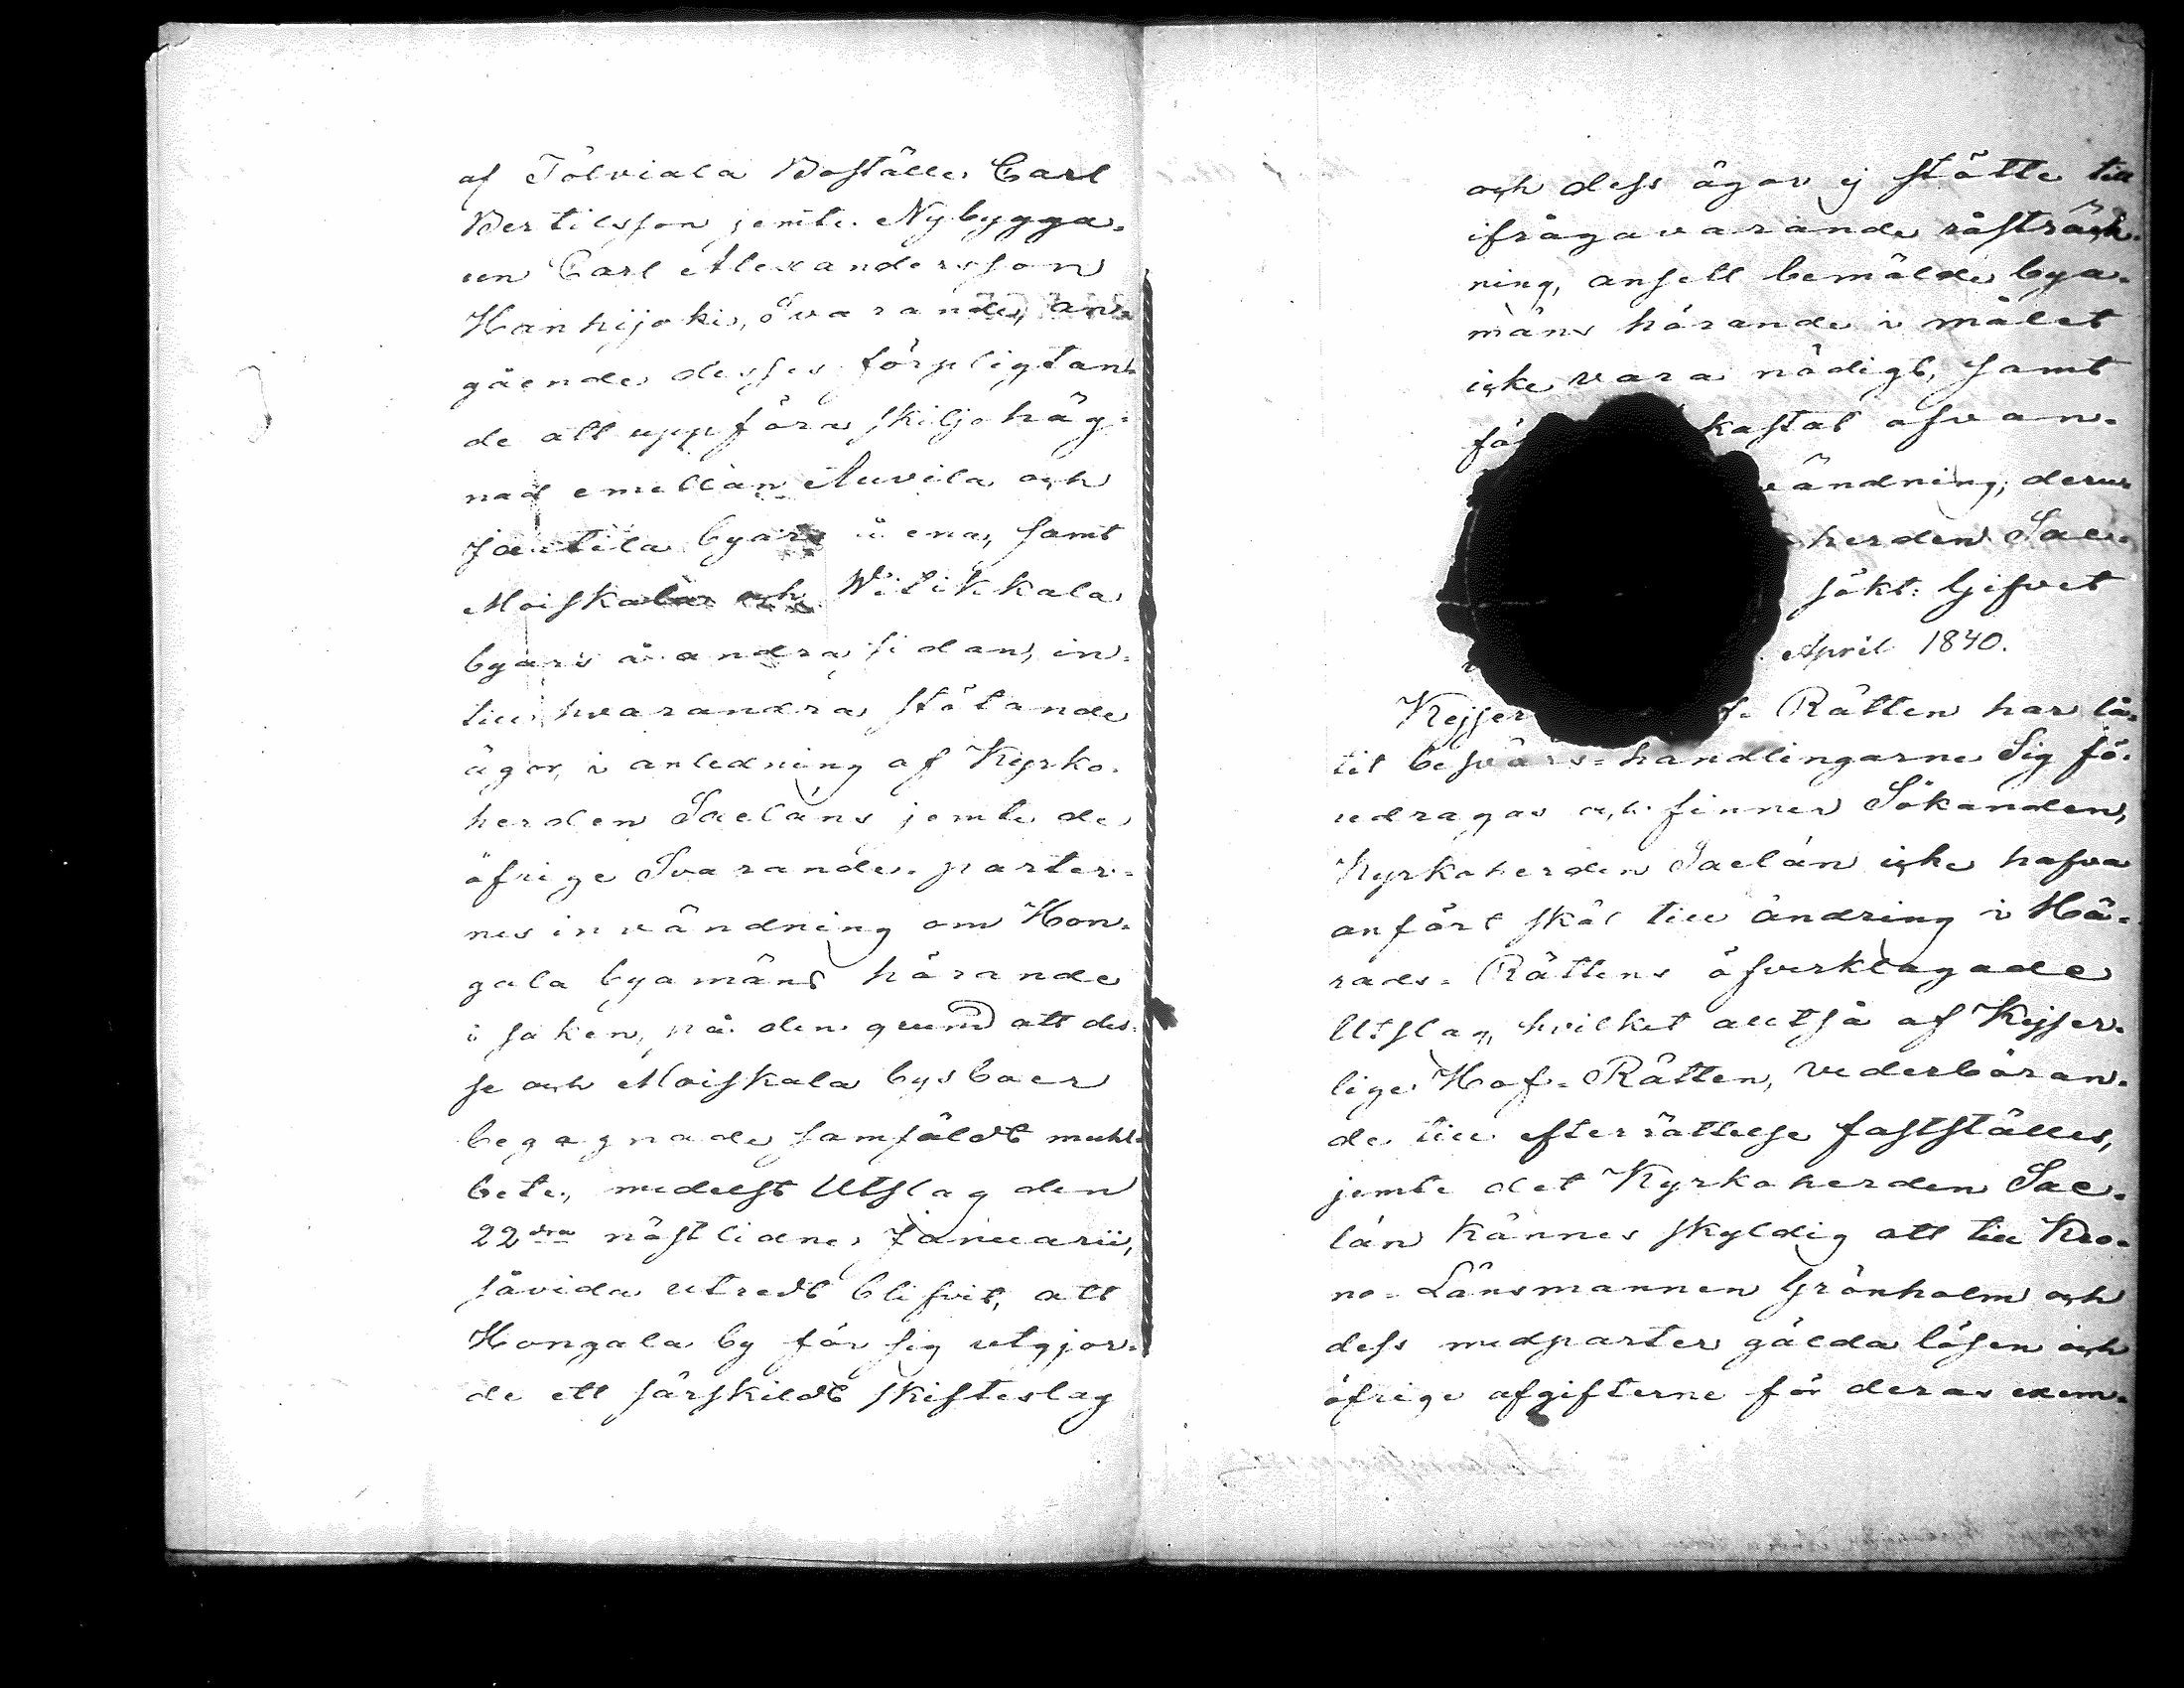 af Tölviala Boställe, Carl
Bertilsson jemte Nybygga-
ren Carl Alexandersson
Hanhijoki, Svarande, an-
gående desses förpligtan-
de att uppföra skiljohäg-
nad emellan Auvila och
Jautila byars å ena, samt
Moiskala och Witikkala
byars å andra sidan, in-
till hvarandra stötande
ägor, i anledning af Kyrko-
herden Saeláns jemte de
öfrige Svarande parter-
nes invändning om Hon-
gala byamäns hörande
i saken, på den grund att des-
se och Moiskala bysboer
begagnade samfäldt muhl-
bete, medelst Utslag den
22dra nästlidne Januarii,
såvida utredt blifvit, att
Hongala by för sig utgjor-
de ett särskildt skifteslag
och dess ägor ej stötte till
ifrågavarande råsträck-
ning, ansett bemälde bya-
mäns hörande i målet
icke vara nödigt, samt
för kastat ofvan-
vändning, derur
herden Sae-
sökt: Gifvet
April 1840.
Kejser f- Rätten har lå-
tit besvärs-handlingarne Sig fö-
redragas och finner Sökanden,
Kyrkoherden Saelán icke hafva
anfört skäl till ändring i Hä-
rads-Rättens öfverklagade
Utslag, hvilket alltså af Kejser-
lige Hof-Rätten, vederböran-
de till efterrättelse fastställes,
jemte det Kyrkoherden Sae-
lán kännes skyldig att till Kro-
no-Länsmannen Grönholm och
dess medparter gälda lösen och
öfrige afgifterne för deras exem-